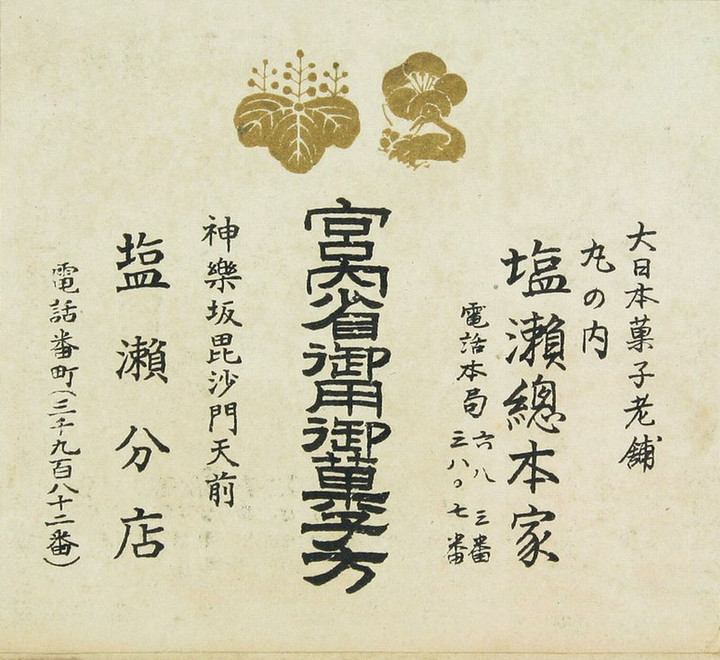 大日本菓子老舗
丸の内
塩瀬總本家
電話本局
六八三番
三八〇七番
宮内省御用御菓子方
神樂坂毘沙門天前
塩瀬分店
電話番町(三千九百八十二番)